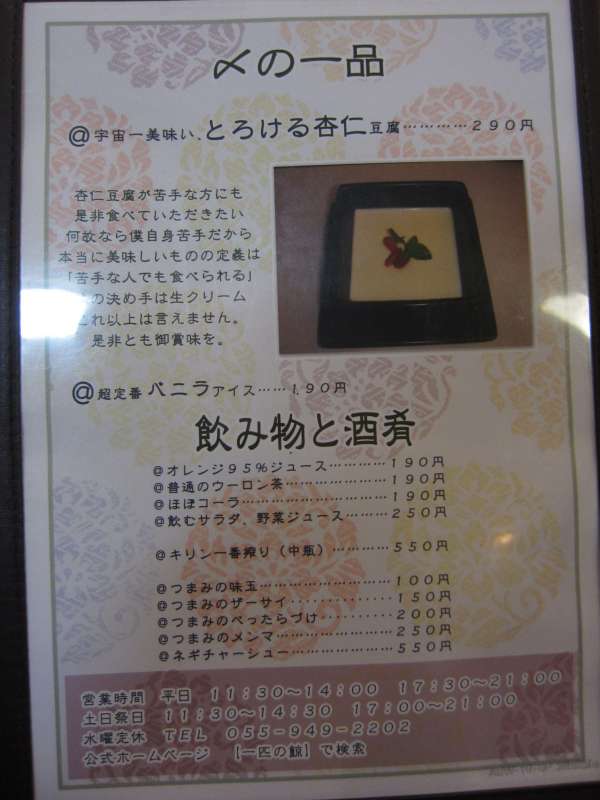 〆の一品
@宇宙一美味い、とろける杏仁豆腐…………290円
杏仁豆腐が苦手な方にも
是非食べていただきたい
何故なら僕自身苦手だから
本当に美味しいものの定義は
「苦手な人でも食べられる」
の決め手は生クリーム
これ以上は言えません。
是非とも御賞味を。
@超定番バニラアイス……190円
飲み物と酒肴
@オレンジ95%ジュース…………190円
@普通のウーロン茶………………190円
@ほぼコーラ………………………190円
@飲むサラダ、野菜ジュース………250円
@キリン一番搾り(中瓶)…………550円
@つまみの味玉……………………100円
@つまみのザーサイ..............150円
@つまみのべったらづけ..........200円
@つまみのメンマ…………………250円
@ネギチャーシュー………………550円
営業時間 平日 11:30〜14:00 17:30〜21:00
土日祭日 11:30〜14:30 17:00〜21:00
水曜定休 TEL 055-949-2202
公式ホームページ 【一匹の鯨】で検索